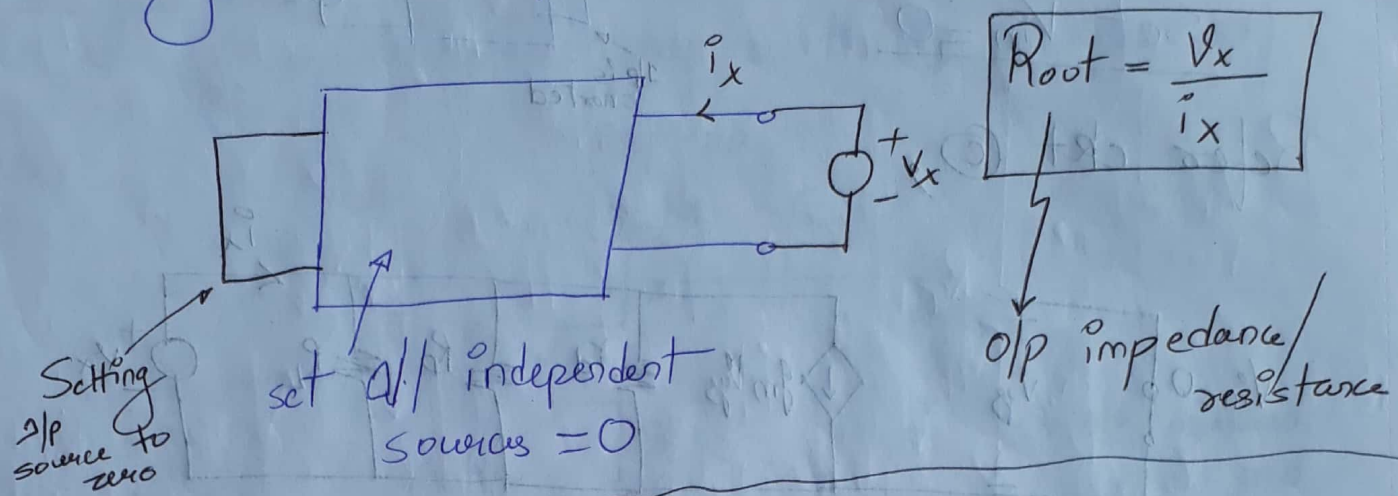 ix
+
Vx
-
Root = Vx / ix
o/p impedance/
resistance
Setting
I/p
source to
zero
set all independent
sources = 0